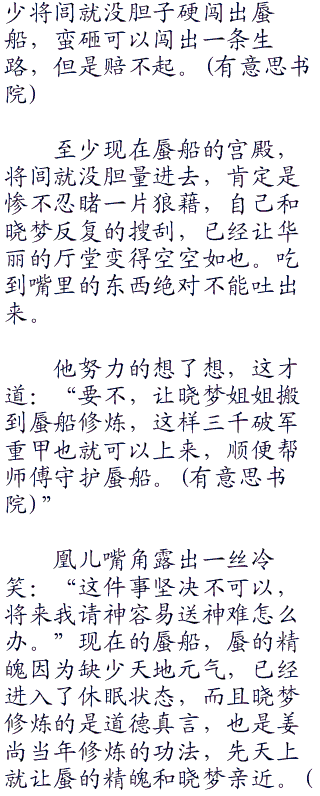 少将闾就没胆子硬闯出蜃
船，蛮砸可以闯出一条生
路，但是赔不起。(有意思书
院)
至少现在蜃船的宫殿，
将闾就没胆量进去，肯定是
惨不忍睹一片狼藉，自己和
晓梦反复的搜刮，已经让华
丽的厅堂变得空空如也。吃
到嘴里的东西绝对不能吐出
来。
他努力的想了想，这才
道：“要不，让晓梦姐姐搬
到蜃船修炼，这样三千破军
重甲也就可以上来，顺便帮
师傅守护蜃船。(有意思书
院)”
凰儿嘴角露出一丝冷
笑：“这件事坚决不可以，
将来我请神容易送神难怎么
办。”现在的蜃船，蜃的精
魄因为缺少天地元气，已经
进入了休眠状态，而且晓梦
修炼的是道德真言，也是姜
尚当年修炼的功法，先天上
就让蜃的精魄和晓梦亲近。(